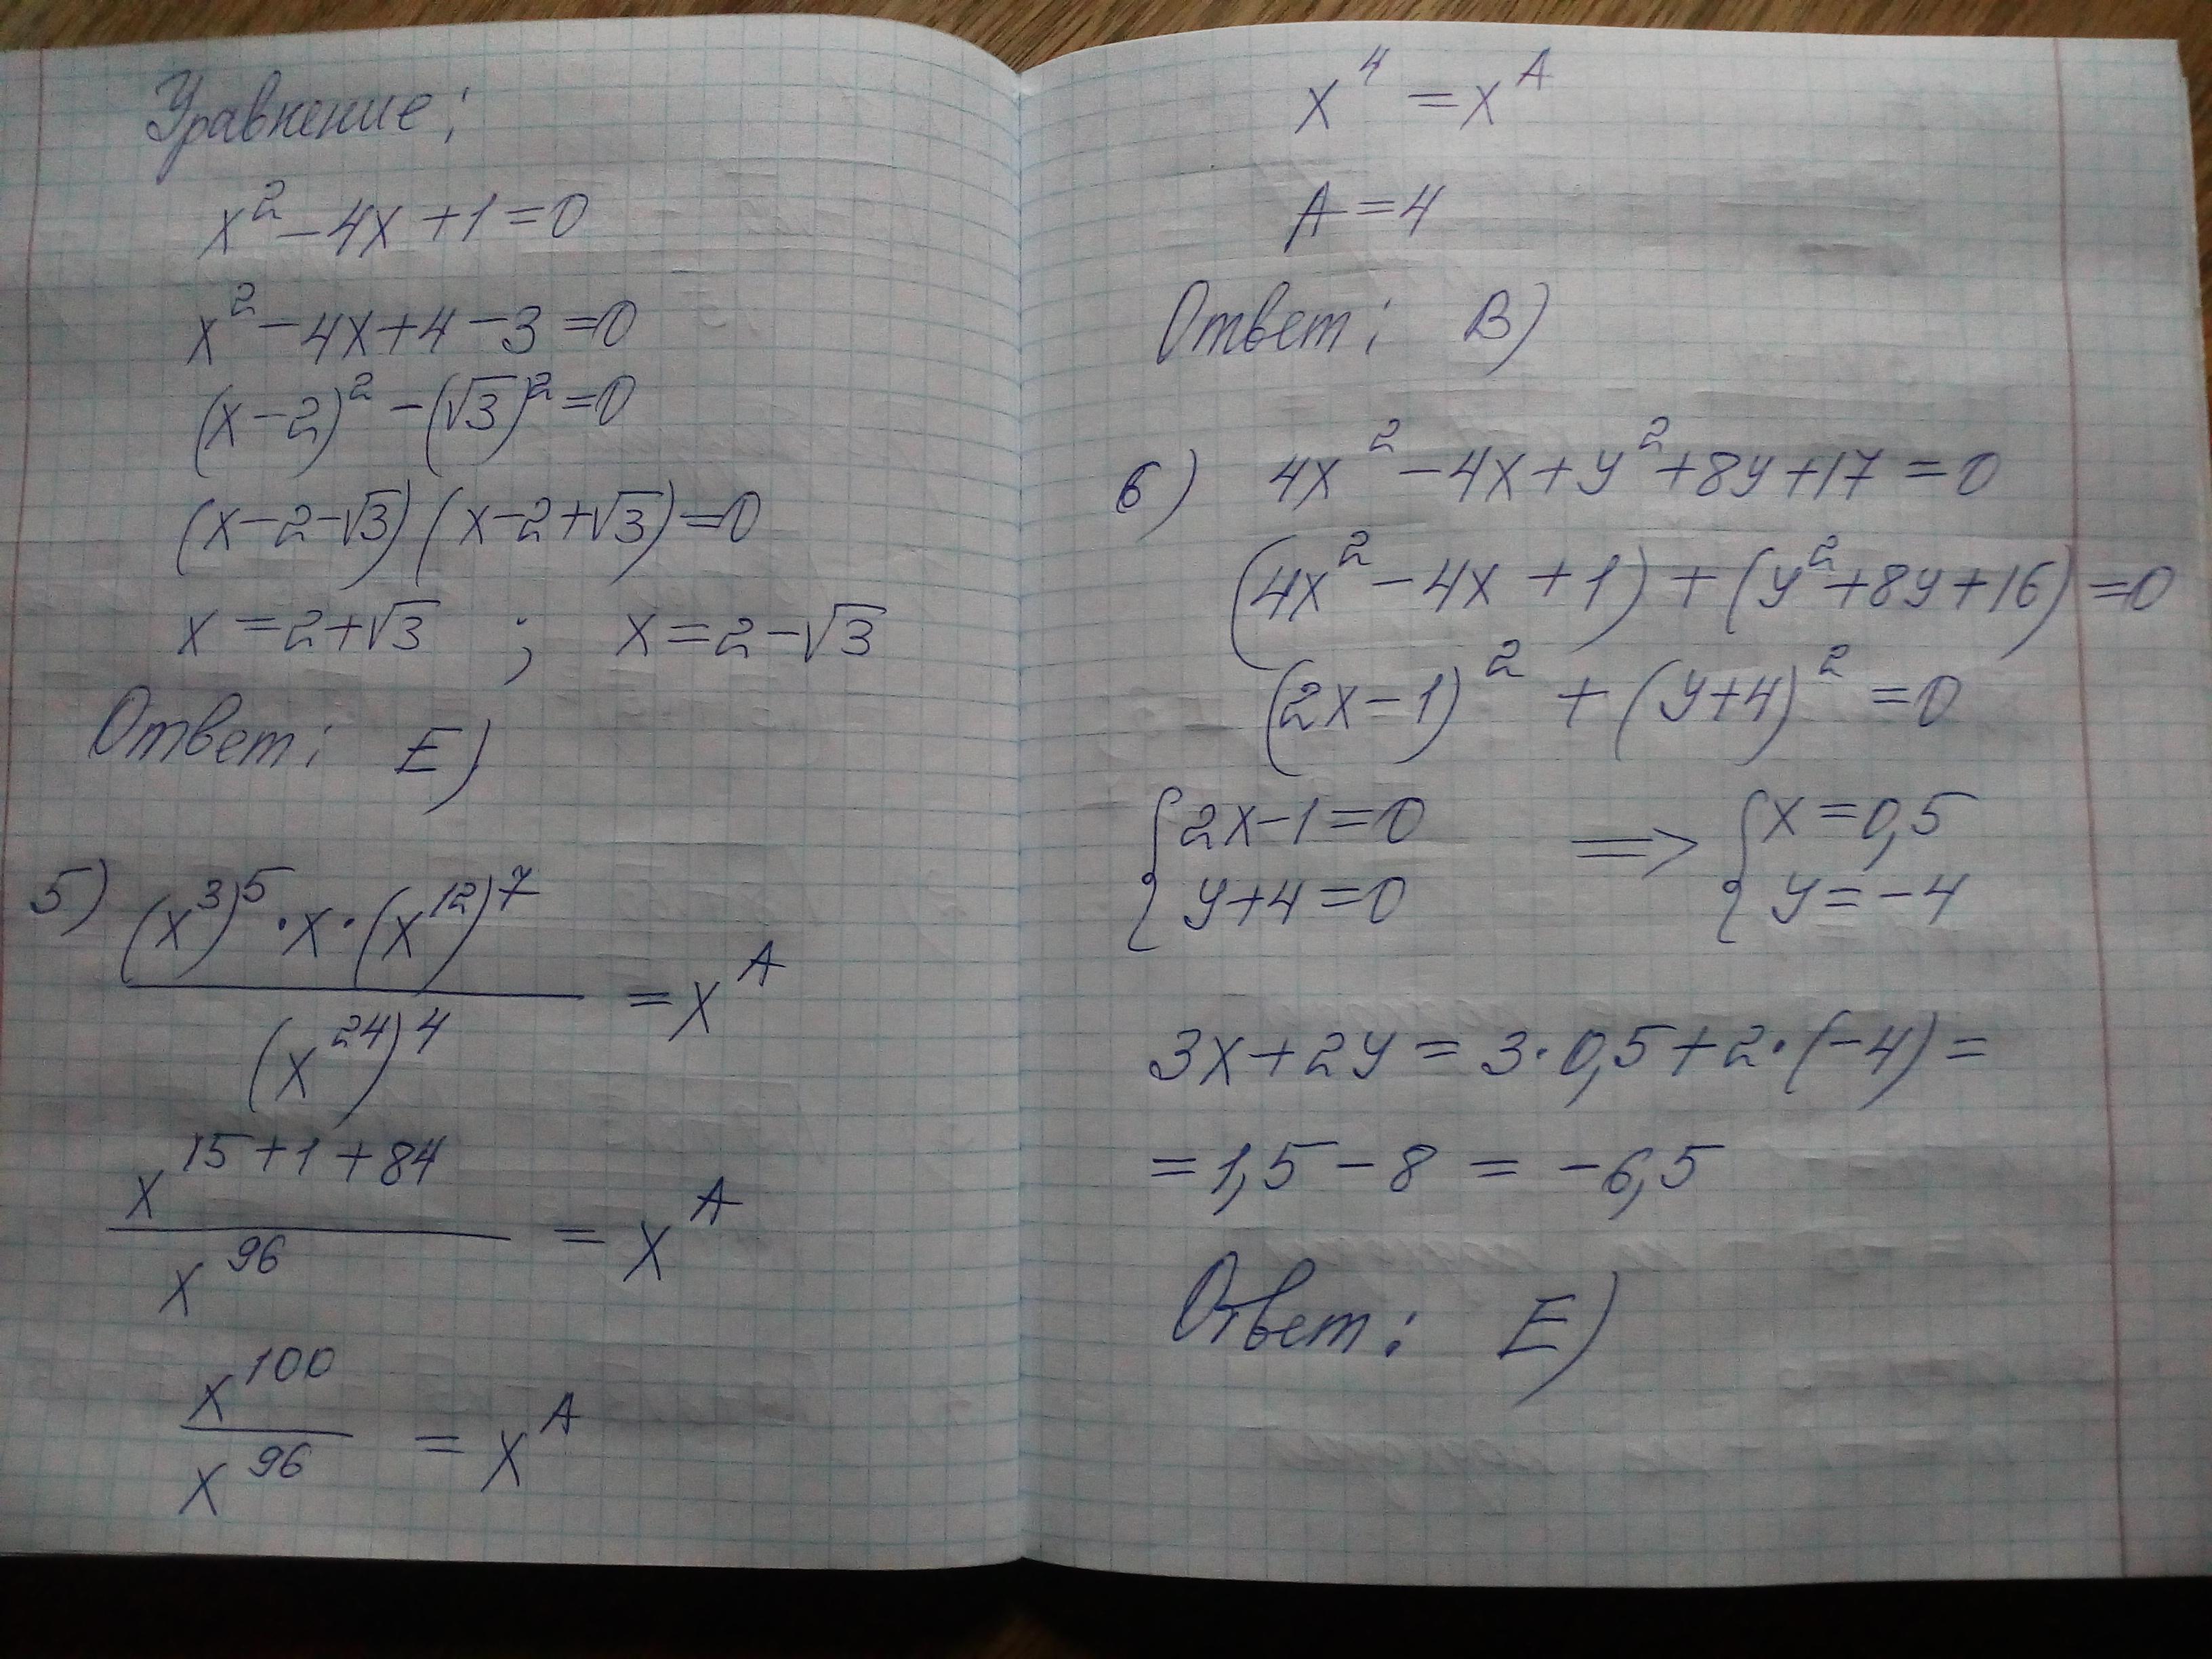 Уравнение:
x² - 4x + 1 = 0
x² - 4x + 4 - 3 = 0
(x - 2)² - (√3)² = 0
(x - 2 - √3)(x - 2 + √3) = 0
x = 2 + √3 ; x = 2 - √3
Ответ: E)
5) ((x³)⁵ · x · (x¹²)⁷) / (x²⁴)⁴ = x^A
x^(15 + 1 + 84) / x⁹⁶ = x^A
x¹⁰⁰ / x⁹⁶ = x^A
x⁴ = x^A
A = 4
Ответ: B)
6) 4x² - 4x + y² + 8y + 17 = 0
(4x² - 4x + 1) + (y² + 8y + 16) = 0
(2x - 1)² + (y + 4)² = 0
{ 2x - 1 = 0 ⟹ { x = 0,5
y + 4 = 0 y = -4
3x + 2y = 3 · 0,5 + 2 · (-4) =
= 1,5 - 8 = -6,5
Ответ: E)